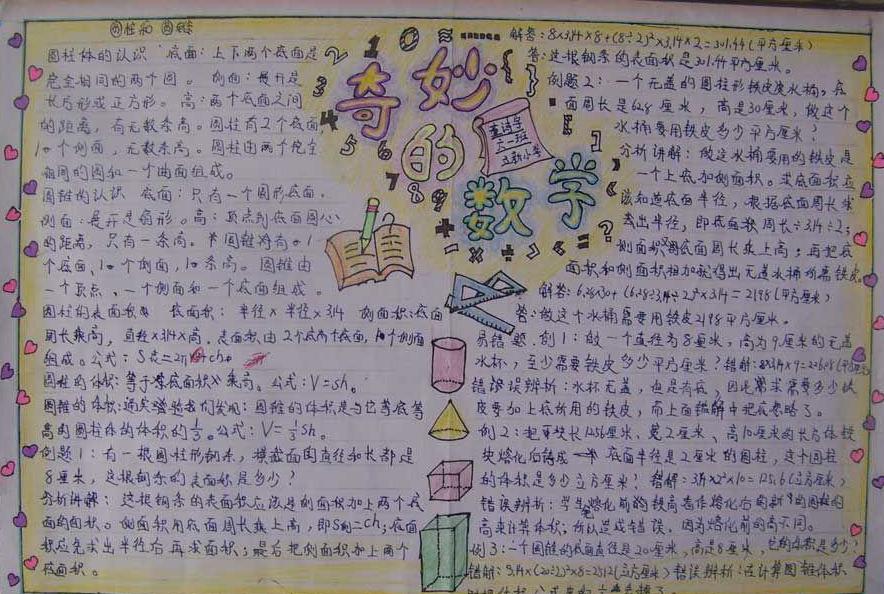 圆柱和圆锥
圆柱体的认识 底面：上下两个底面是
完全相同的两个圆。 侧面：展开是
长方形或正方形。高：两个底面之间
的距离，有无数条高。圆柱有2个底面
1个侧面，无数条高。圆柱由两个完全
相同的圆和一个曲面组成。
圆锥的认识 底面：只有一个圆形底面。
侧面：展开是扇形。高：顶点到底面圆心
的距离，只有一条高。圆锥有1
个底面、1个侧面，1条高。圆锥由
一个顶点、一个侧面和一个底面组成。
圆柱的表面积 底面积：半径×半径×3.14 侧面积：底面
周长乘高，直径×3.14×高。表面积由2个底面，1个侧面
组成。公式：S表=2π ch
圆柱的体积：等于底面积乘高。公式：V=sh。
圆锥的体积：通过实验我们发现：圆锥的体积是与它等底等
高的圆柱体的体积的1/3。公式：V=1/3sh。
例题1：有一根圆柱形钢条，横截面的直径和长都是
8厘米，这根钢条的表面积是多少？
分析讲解：这根钢条的表面积应该是侧面积加上两个底
面的面积。侧面积用底面周长乘上高，即S侧=ch；底面
积应先求出半径后再求面积；最后把侧面积加上两个
底面积。
2 1 0 ≈
3 4 5 6 7 8 9
奇妙
的
数学
六一班
+ - × ÷ > < = ?
{ } [ ]
解答：8×3.14×8+(8÷2)²×3.14×2=301.44(平方厘米)
答：这根钢条的表面积是301.44平方厘米。
例题2：一个无盖的圆柱形铁皮水桶，底
面周长是6.28厘米，高是30厘米，做这个
水桶要用铁皮多少平方厘米？
分析讲解：做这水桶要用的铁皮是
一个上底和侧面积。求底面积应
该知道底面半径，根据底面周长求
出半径，即底面周长÷3.14÷2；
侧面积用底面周长乘上高；再把底
面积和侧面积相加就得出无盖水桶所需铁皮。
解答：6.28×30+(6.28÷3.14÷2)²×3.14=2198(平方厘米)
答：做这个水桶需要用铁皮2198平方厘米。
易错题 例1：做一个直径为8厘米，高为9厘米的无盖
水杯，至少需要铁皮多少平方厘米？错解：8×3.14×9=226.08(平方厘米)
错误辨析：水杯无盖，也是有底，因此需求需要多少铁
皮要加上底所用的铁皮，而上面错解中把底忽略了。
例2：把一块长12.56厘米、宽2厘米、高10厘米的长方体铁
块熔化后铸成一个底面半径是2厘米的圆柱，这个圆柱
的体积是多少立方厘米？错解：3.14×2²×10=125.6(立方厘米)
错误辨析：学生把熔化前的铁高看作熔化后的圆柱的
高来计算体积，所以造成错误，因为熔化前后的高不同。
例3：一个圆锥的底面直径是20厘米，高是8厘米，它的体积是多少？
错解：3.14×(20÷2)²×8=2512(立方厘米) 错误辨析：在计算圆锥体积